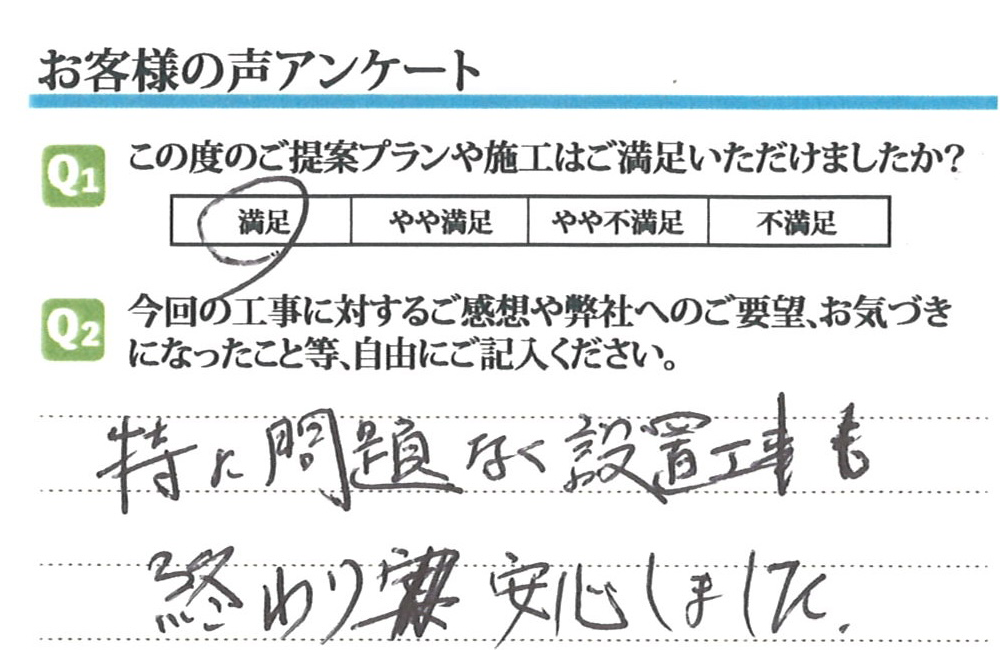 お客様の声アンケート
Q1 この度のご提案プランや施工はご満足いただけましたか?
満足 やや満足 やや不満足 不満足
Q2 今回の工事に対するご感想や弊社へのご要望、お気づき
になったこと等、自由にご記入ください。
特に問題なく設置工事も
終わり 安心しました.